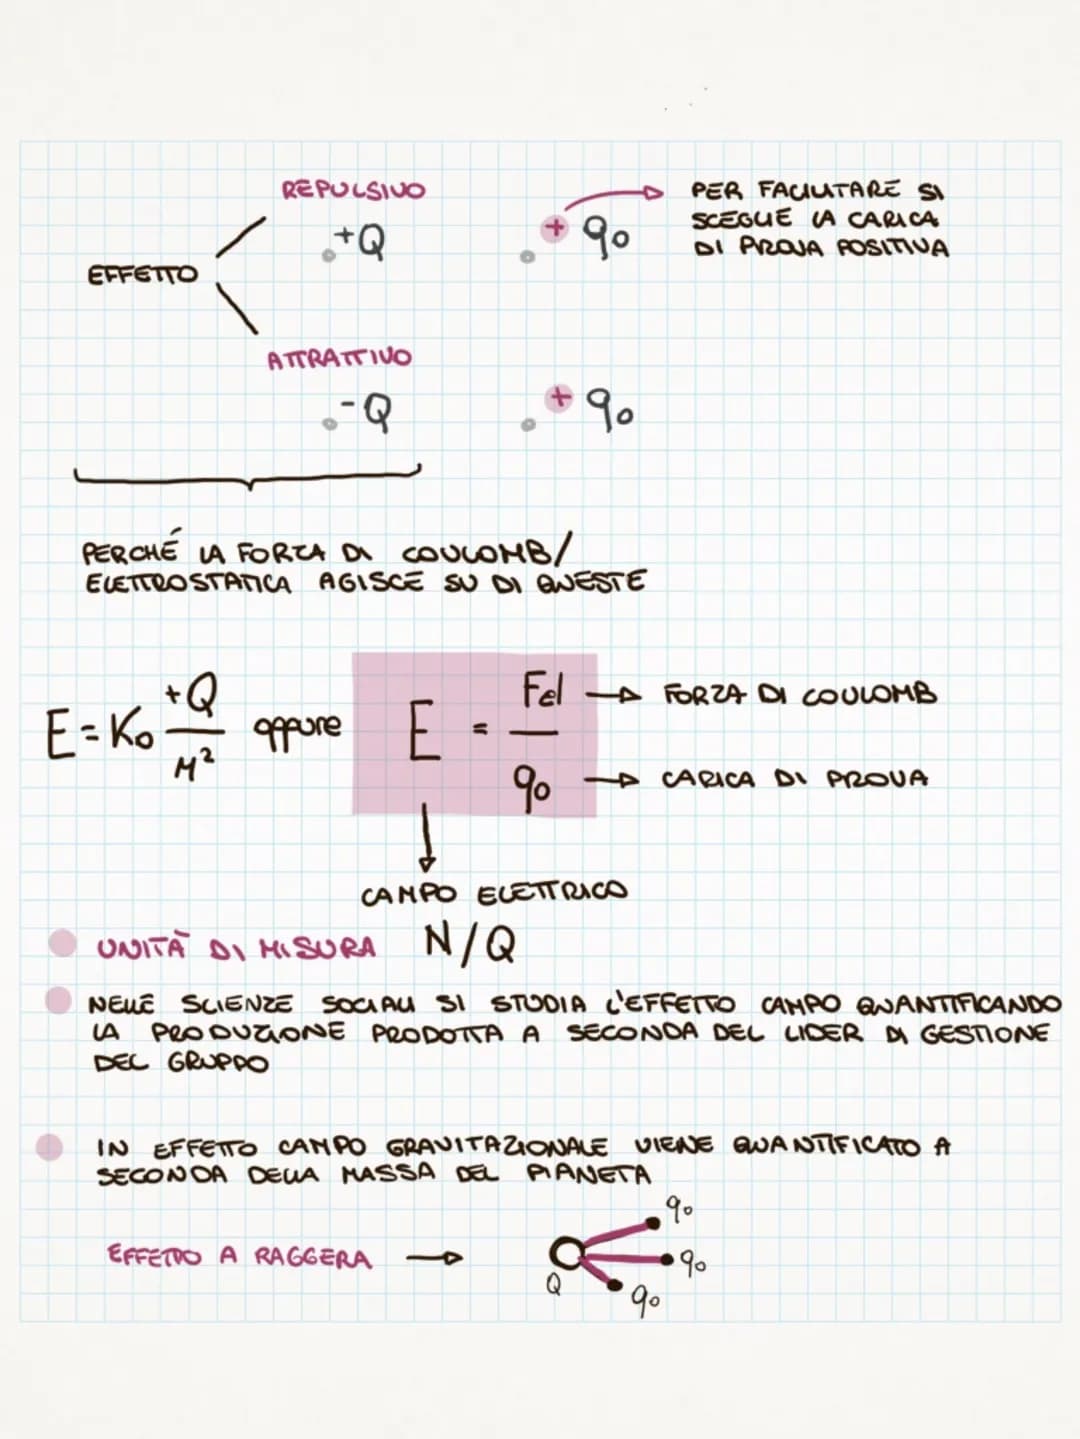 REPULSIVO
+Q
+ q0
PER FACILITARE SI
SCEGLIE LA CARICA
DI PROVA POSITIVA
EFFETTO
ATTRATTIVO
-Q
+ q0
PERCHÉ LA FORZA DI COULOMB/
ELETTROSTATICA AGISCE SU DI QUESTE
E = K0 +Q/M² oppure E = Fel/q0
FORZA DI COULOMB
CARICA DI PROVA
CAMPO ELETTRICO
UNITÀ DI MISURA N/Q
NELLE SCIENZE SOCIALI SI STUDIA L'EFFETTO CAMPO QUANTIFICANDO
LA PRODUZIONE PRODOTTA A SECONDA DEL LIDER DI GESTIONE
DEL GRUPPO
IN EFFETTO CAMPO GRAVITAZIONALE VIENE QUANTIFICATO A
SECONDA DELLA MASSA DEL PIANETA
EFFETTO A RAGGERA
q0
q0
Q
q0